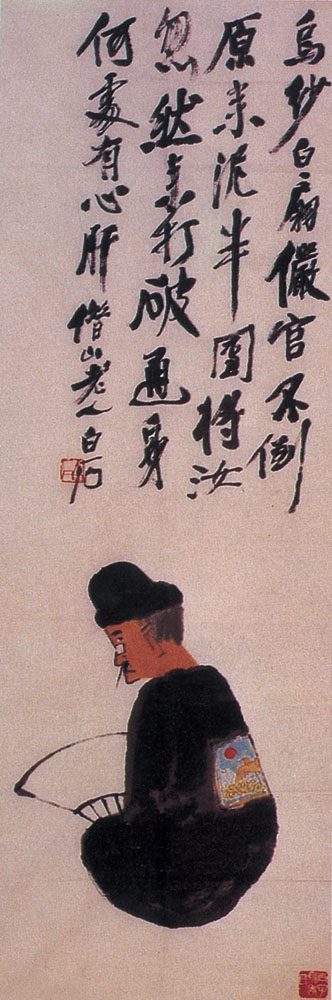 烏紗白扇儼官不倒
原来泥半團將汝
忽然来打破通身
何處有心肝 借山老人白石